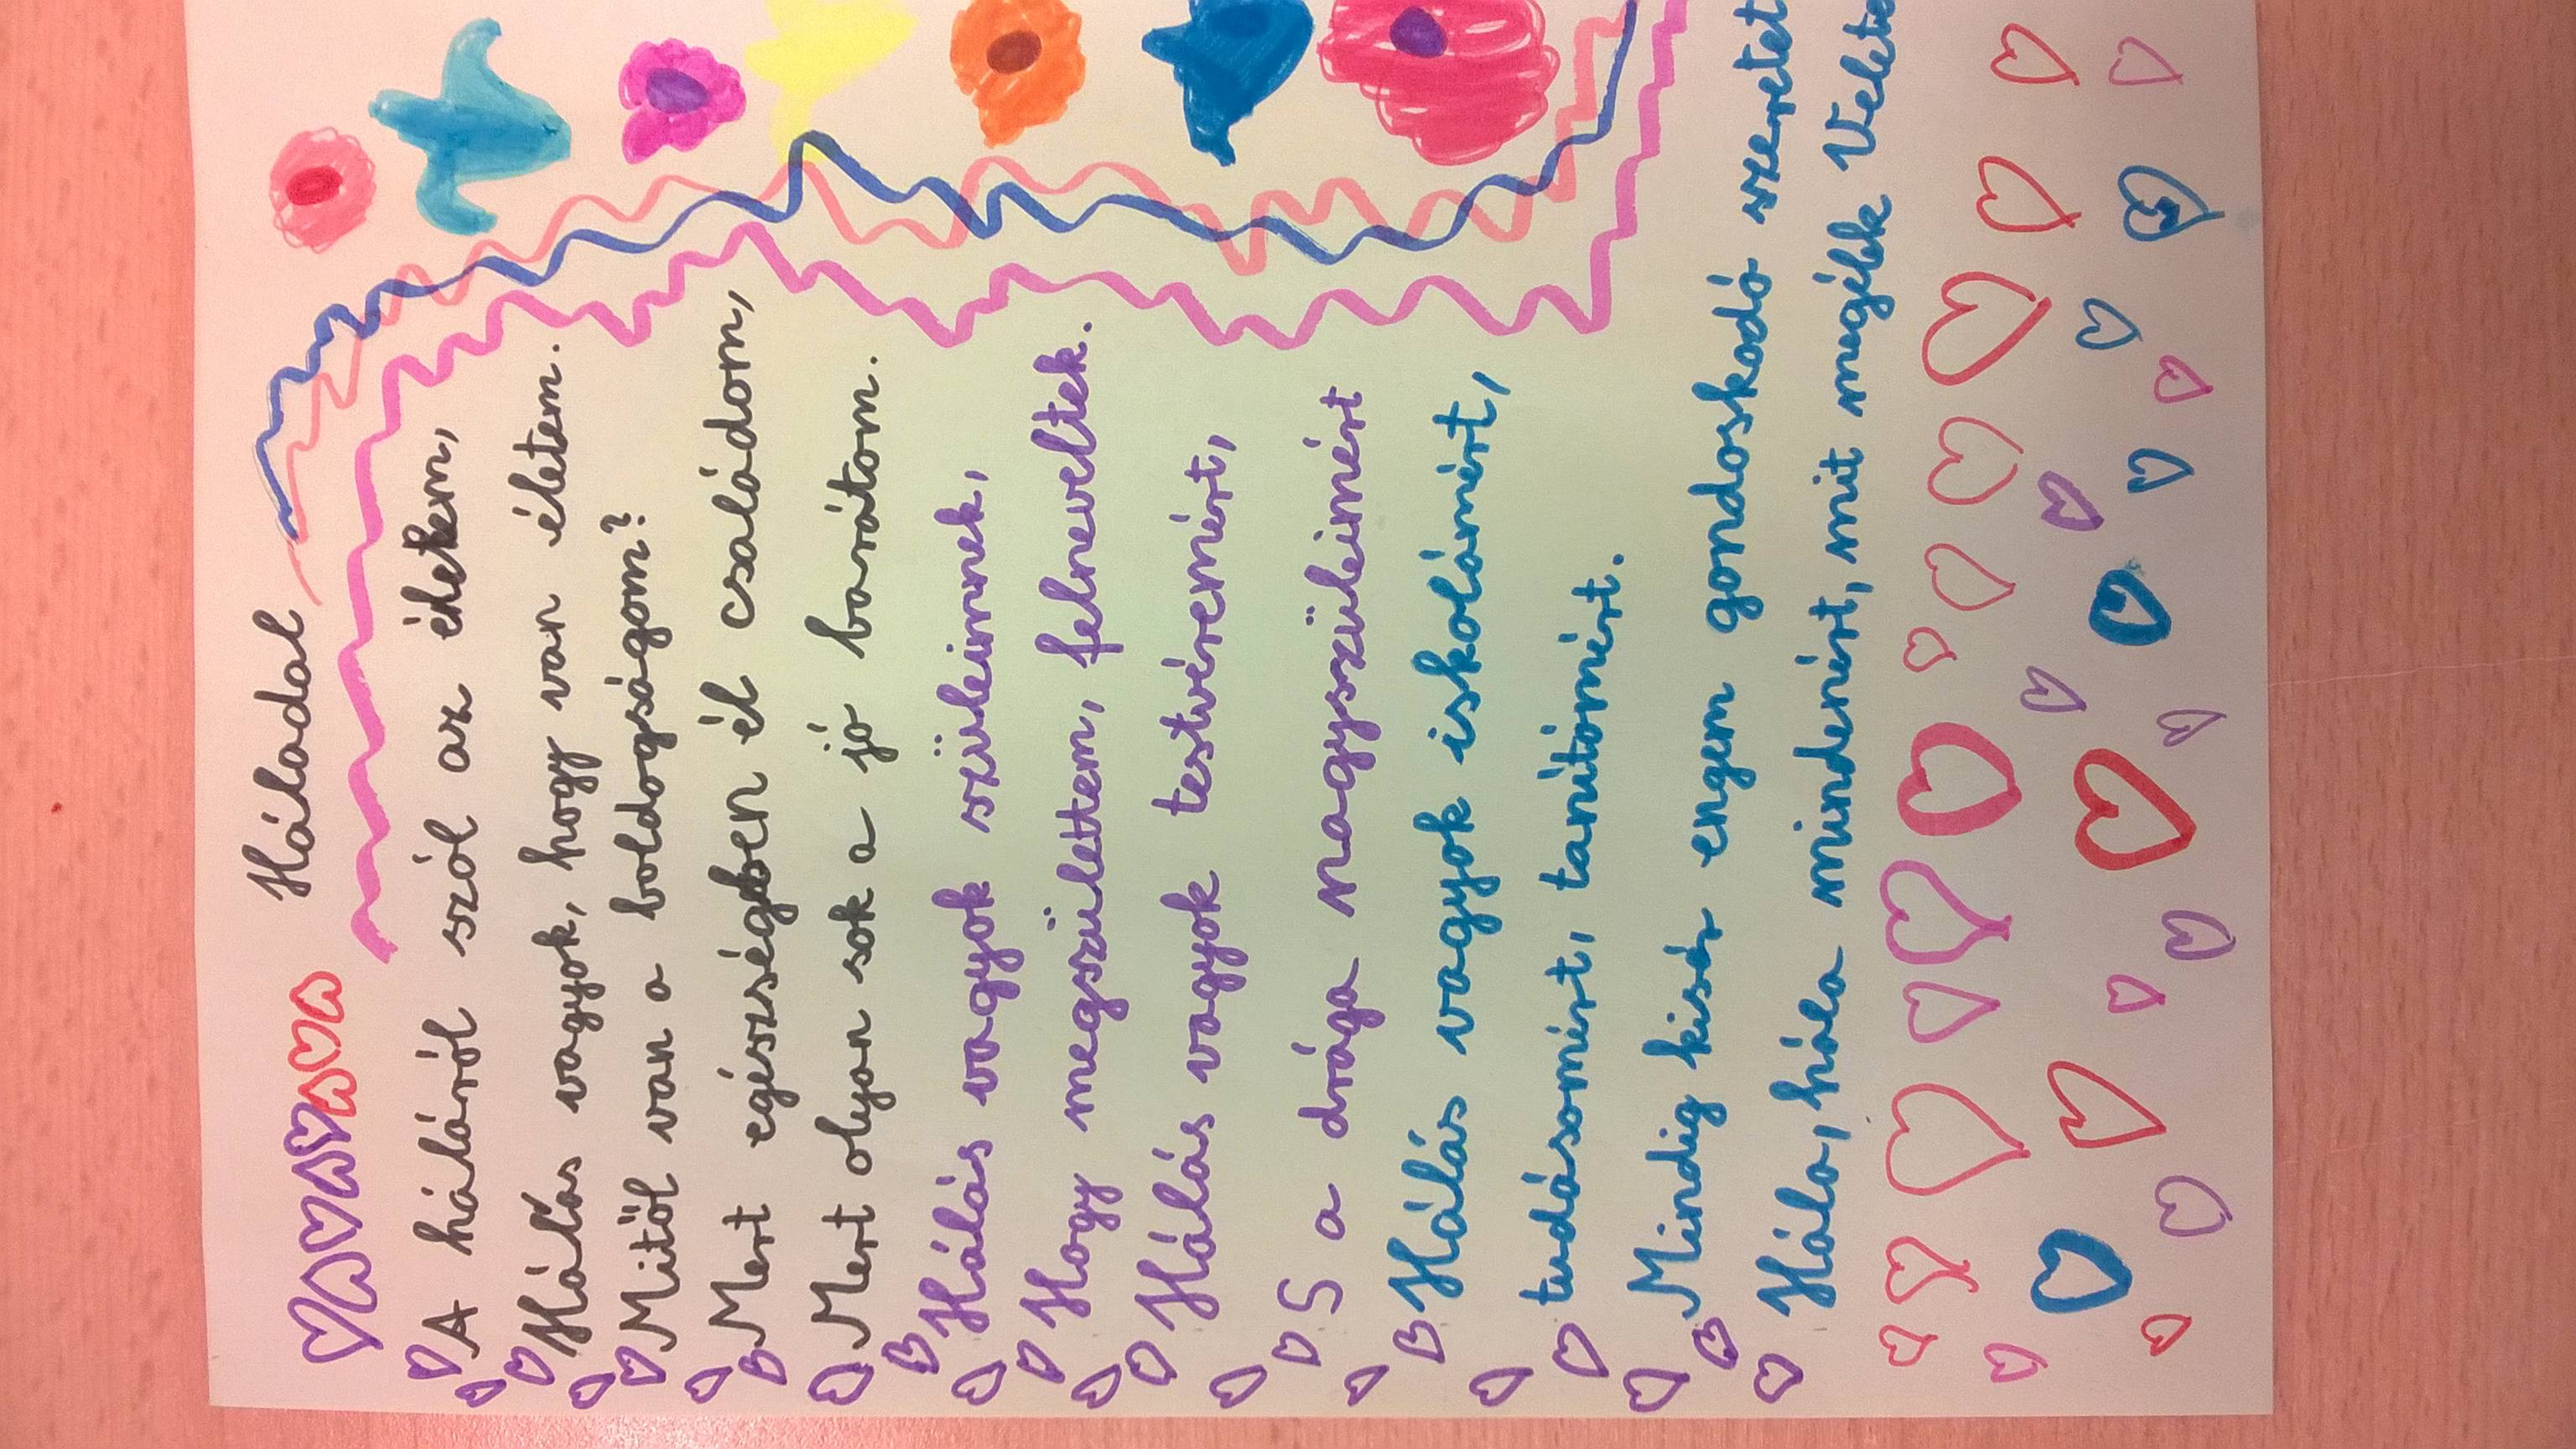 Háladal
A háláról szól az énekem,
Hálás vagyok, hogy van életem.
Mitől van a boldogságom?
Mert egészségben él családom,
Mert olyan sok a jó barátom.
Hálás vagyok szüleimnek,
Hogy megszülettem, felneveltek.
Hálás vagyok testvéremért,
S a drága nagyszüleimért
Hálás vagyok iskolámért,
tudásomért, tanítómért.
Mindig kisér engem gondoskodó szeretet
Hála, hála mindenért, mit megélek